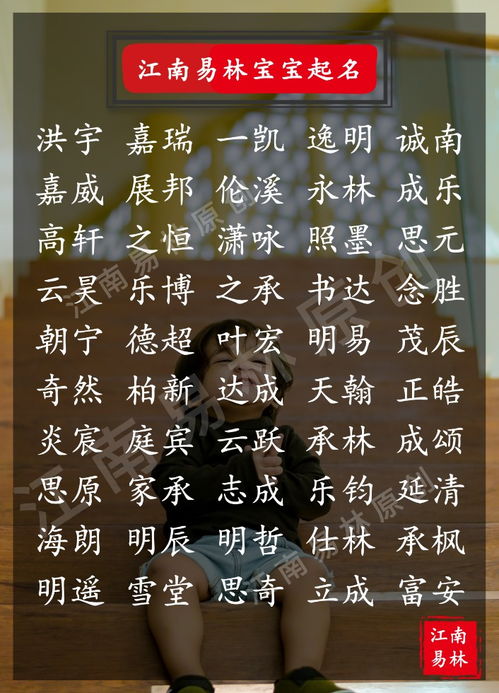 江南易林宝宝起名
洪宇 嘉瑞 一凯 逸明 诚南
嘉威 展邦 伦溪 永林 成乐
高轩 之恒 潇咏 照墨 思元
云昊 乐博 之承 书达 念胜
朝宁 德超 叶宏 明易 茂辰
奇然 柏新 达成 天翰 正皓
炎宸 庭宾 云跃 承林 成颂
思原 家承 志成 乐钧 延清
海朗 明辰 明哲 仕林 承枫
明遥 雪堂 思奇 立成 富安
江南易林原创
江南易林原创
江南易林原创
江南
易林